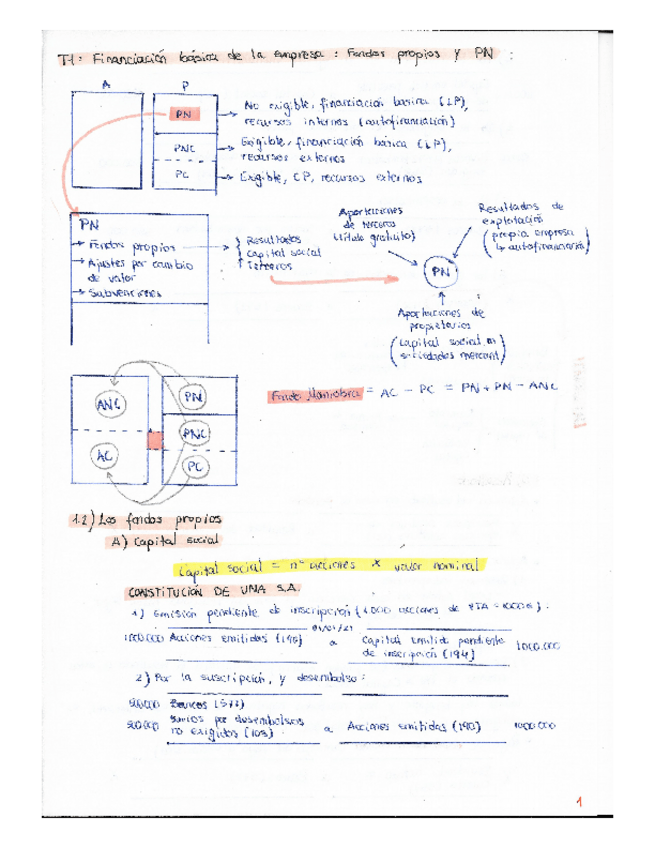 T-1: Financiación básica de la empresa: Fondos propios y PN:
A
P
PN
No exigible, financiación básica (LP),
recursos internos (autofinanciación)
PNC
Exigible, financiación básica (LP),
recursos externos
PC
Exigible, CP, recursos externos
PN
Fondos propios
Ajustes por cambio
de valor
Subvenciones
Resultados
Capital social
Terceros
Aportaciones
de terceros
(título gratuito)
Resultados de
explotación
(propia empresa
autofinanciación)
PN
Aportaciones de
propietarios
(capital social en
sociedades mercant)
ANC
AC
PN
PNC
PC
Fondo Maniobra = AC - PC = PN + PN - ANC
1.2) Los fondos propios
A) Capital social
Capital social = nº acciones x valor nominal
CONSTITUCIÓN DE UNA S.A.
1) Emisión pendiente de inscripción (1.000 acciones de
01/01/21
1.000.000 Acciones emitidas (190) a Capital emitido pendiente
de inscripción (194) 1.000.000
2) Por la suscripción, y desembolso:
Bancos (572)
Socios por desembolsos
no exigidos (103) a Acciones emitidas (190) 1000.000
1